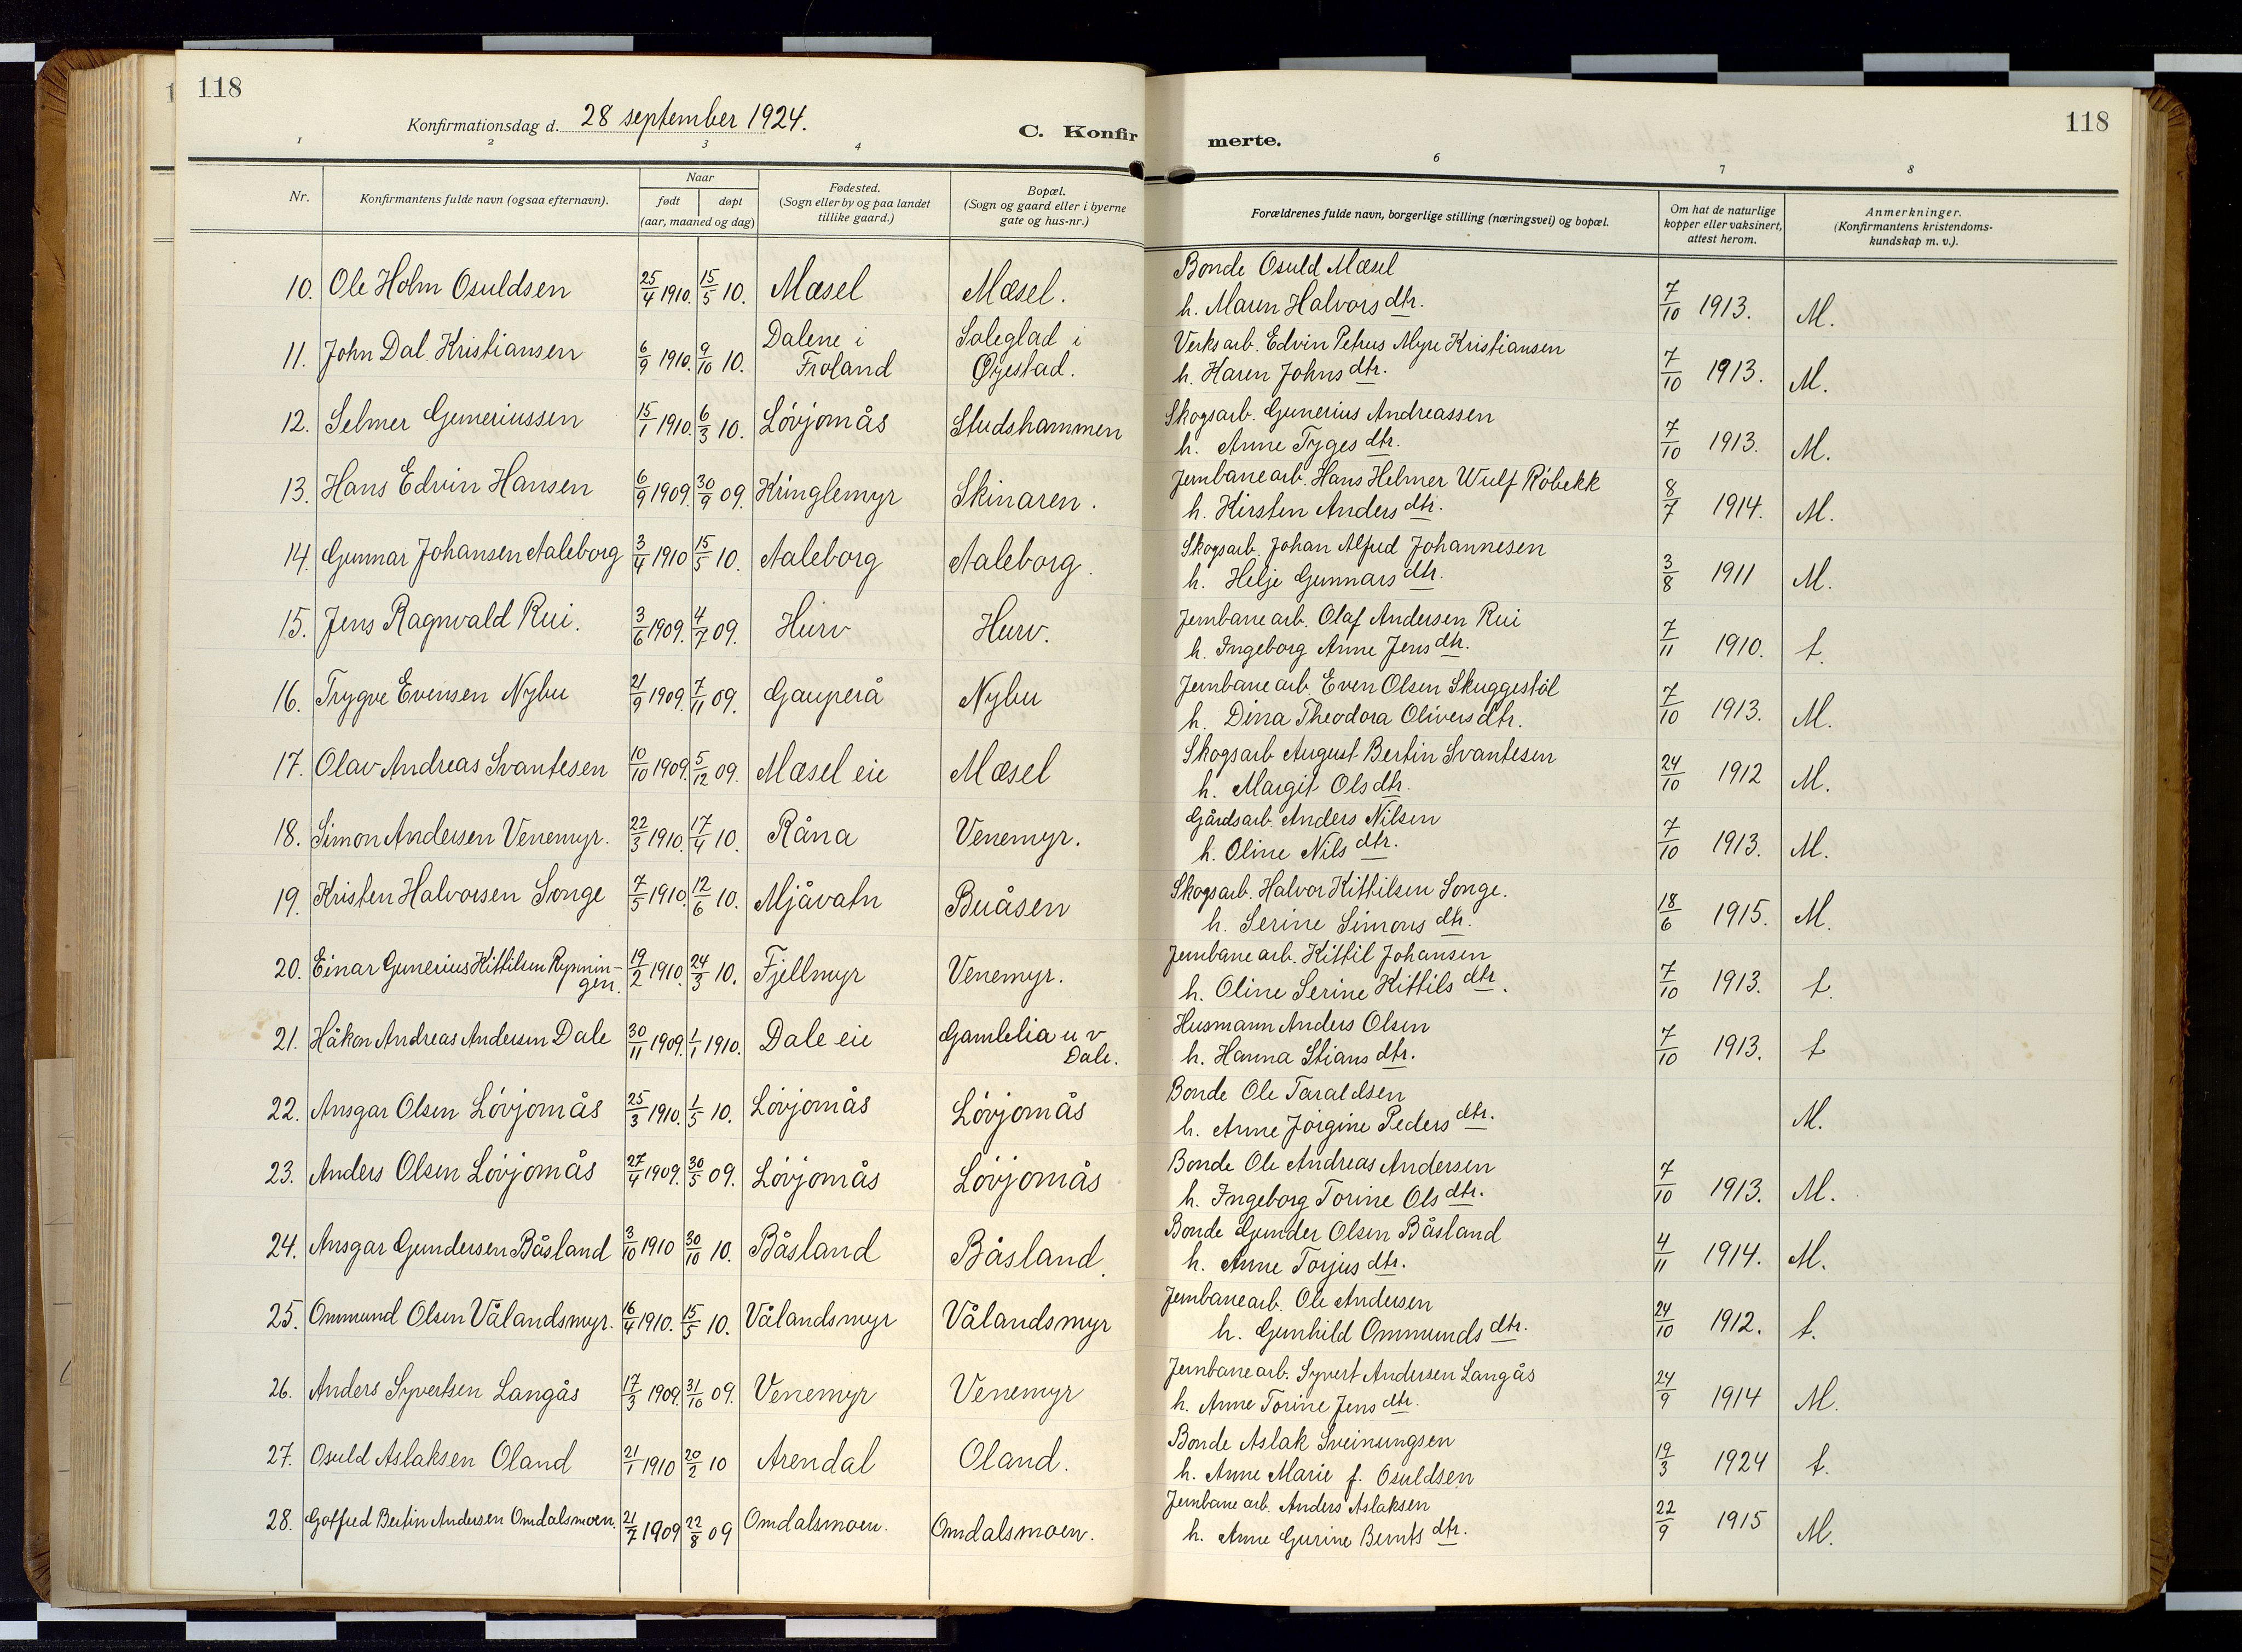 118
Konfirmationsdag d. 28 september 1924.
C. Konfirmerte.
118
1 2 3 4 6 7 8
Nr.
Konfirmantens fulde navn (ogsaa efternavn).
Naar
født døpt
(aar, maaned og dag)
Fødested.
(Sogn eller by og paa landet
tillike gaard.)
Bopæl.
(Sogn og gaard eller i byerne
gate og hus-nr.)
Forældrenes fulde navn, borgerlige stilling (næringsvei) og bopæl.
Om hat de naturlige
kopper eller vaksinert,
attest herom.
Anmerkninger.
(Konfirmantens kristendoms-
kundskap m. v.).
10. Ole Holm Osuldsen 25/4 1910. 15/5 10. Mæsel Mæsel. Bonde Osuld Mæsel
h. Maren Halvorsdtr. 7/10 1913. M.
11. John Dal Kristiansen 6/9 1910. 9/10 10. Dalene i Froland Soleglad i Øyestad. Verksarb. Edvin Petrus Myre Kristiansen
h. Karen Johnsdtr. 7/10 1913. M.
12. Selmer Guneriussen 15/1 1910. 6/3 10. Lövjomås Studshammen Skogsarb. Gunerius Andreassen
h. Anne Trygesdtr. 7/10 1913. M.
13. Hans Edvin Hansen 6/9 1909. 30/9 09. Kringlemyr Skinaren. Jernbanearb. Hans Helmer Wulf Röbekk
h. Kirsten Andersdtr. 8/7 1914. M.
14. Gunnar Johansen Aaleborg 3/4 1910 15/5 10. Aaleborg Aaleborg. Skogsarb. Johan Alfred Johannesen
h. Helje Gunnarsdtr. 3/8 1911 M.
15. Jens Ragnvald Rui. 3/6 1909. 4/7 09. Hurv Hurv. Jernbanearb. Olaf Andersen Rui
h. Ingeborg Anne Jensdtr. 7/11 1910. t.
16. Trygve Evensen Nybu 21/9 1909. 7/11 09. Gauperå Nybu Jernbanearb. Even Olsen Skuggestöl
h. Dina Theodora Oliversdtr. 7/10 1913. M.
17. Olav Andreas Svantesen 10/10 1909. 5/12 09. Mæsel eie Mæsel Skogsarb August Bertin Svantesen
h. Margit Olsdtr. 24/10 1912 M.
18. Simon Andersen Venemyr. 22/3 1910. 17/4 10. Råna Venemyr. Gårdsarb. Anders Nilsen
h. Oline Nilsdtr. 7/10 1913. M.
19. Kristen Halvorsen Songe 7/5 1910. 12/6 10. Mjåvatn Buåsen Skogsarb. Halvor Kittilsen Songe.
h. Serine Simonsdtr. 18/6 1915. M.
20. Einar Gunerius Kittilsen Rynnin-
gen. 19/2 1910. 24/3 10. Fjellmyr Venemyr. Jernbanearb. Kittil Johansen
h. Oline Serine Kittilsdtr. 7/10 1913. t.
21. Håkon Andreas Andersen Dale 30/11 1909. 1/1 1910. Dale eie Gamlelia u v Dale. Husmann Anders Olsen
h. Hanna Stiansdtr. 7/10 1913. t
22. Ansgar Olsen Lövjomås 25/3 1910. 1/5 10. Lövjomås Lövjomås Bonde Ole Taraldsen
h. Anne Jörgine Pedersdtr. M.
23. Anders Olsen Lövjomås 27/4 1909. 30/5 09. Lövjomås Lövjomås Bonde Ole Andreas Andersen
h. Ingeborg Torine Olsdtr. 7/10 1913. M.
24. Ansgar Gundersen Båsland 3/10 1910 30/10 10. Båsland Båsland. Bonde Gunder Olsen Båsland
h. Anne Torjusdtr. 4/11 1914. M.
25. Ommund Olsen Vålandsmyr. 16/4 1910. 15/5 10. Vålandsmyr Vålandsmyr Jernbanearb. Ole Andersen
h. Gunhild Ommundsdtr. 24/10 1912. t.
26. Anders Syvertsen Langås 17/3 1909. 31/10 09. Venemyr Venemyr Jernbanearb. Syvert Andersen Langås
h. Anne Torine Jensdtr. 24/9 1914 M.
27. Osuld Aslaksen Oland 21/1 1910 20/2 10 Arendal Oland. Bonde Aslak Sveinungsen
h. Anne Marie f. Osuldsen 19/3 1924 t.
28. Gotfred Bertin Andersen Omdalsmoen. 21/7 1909 22/8 09 Omdalsmoen. Omdalsmoen. Jernbanearb. Anders Aslaksen
h. Anne Gurine Berntsdtr. 22/9 1915 M.